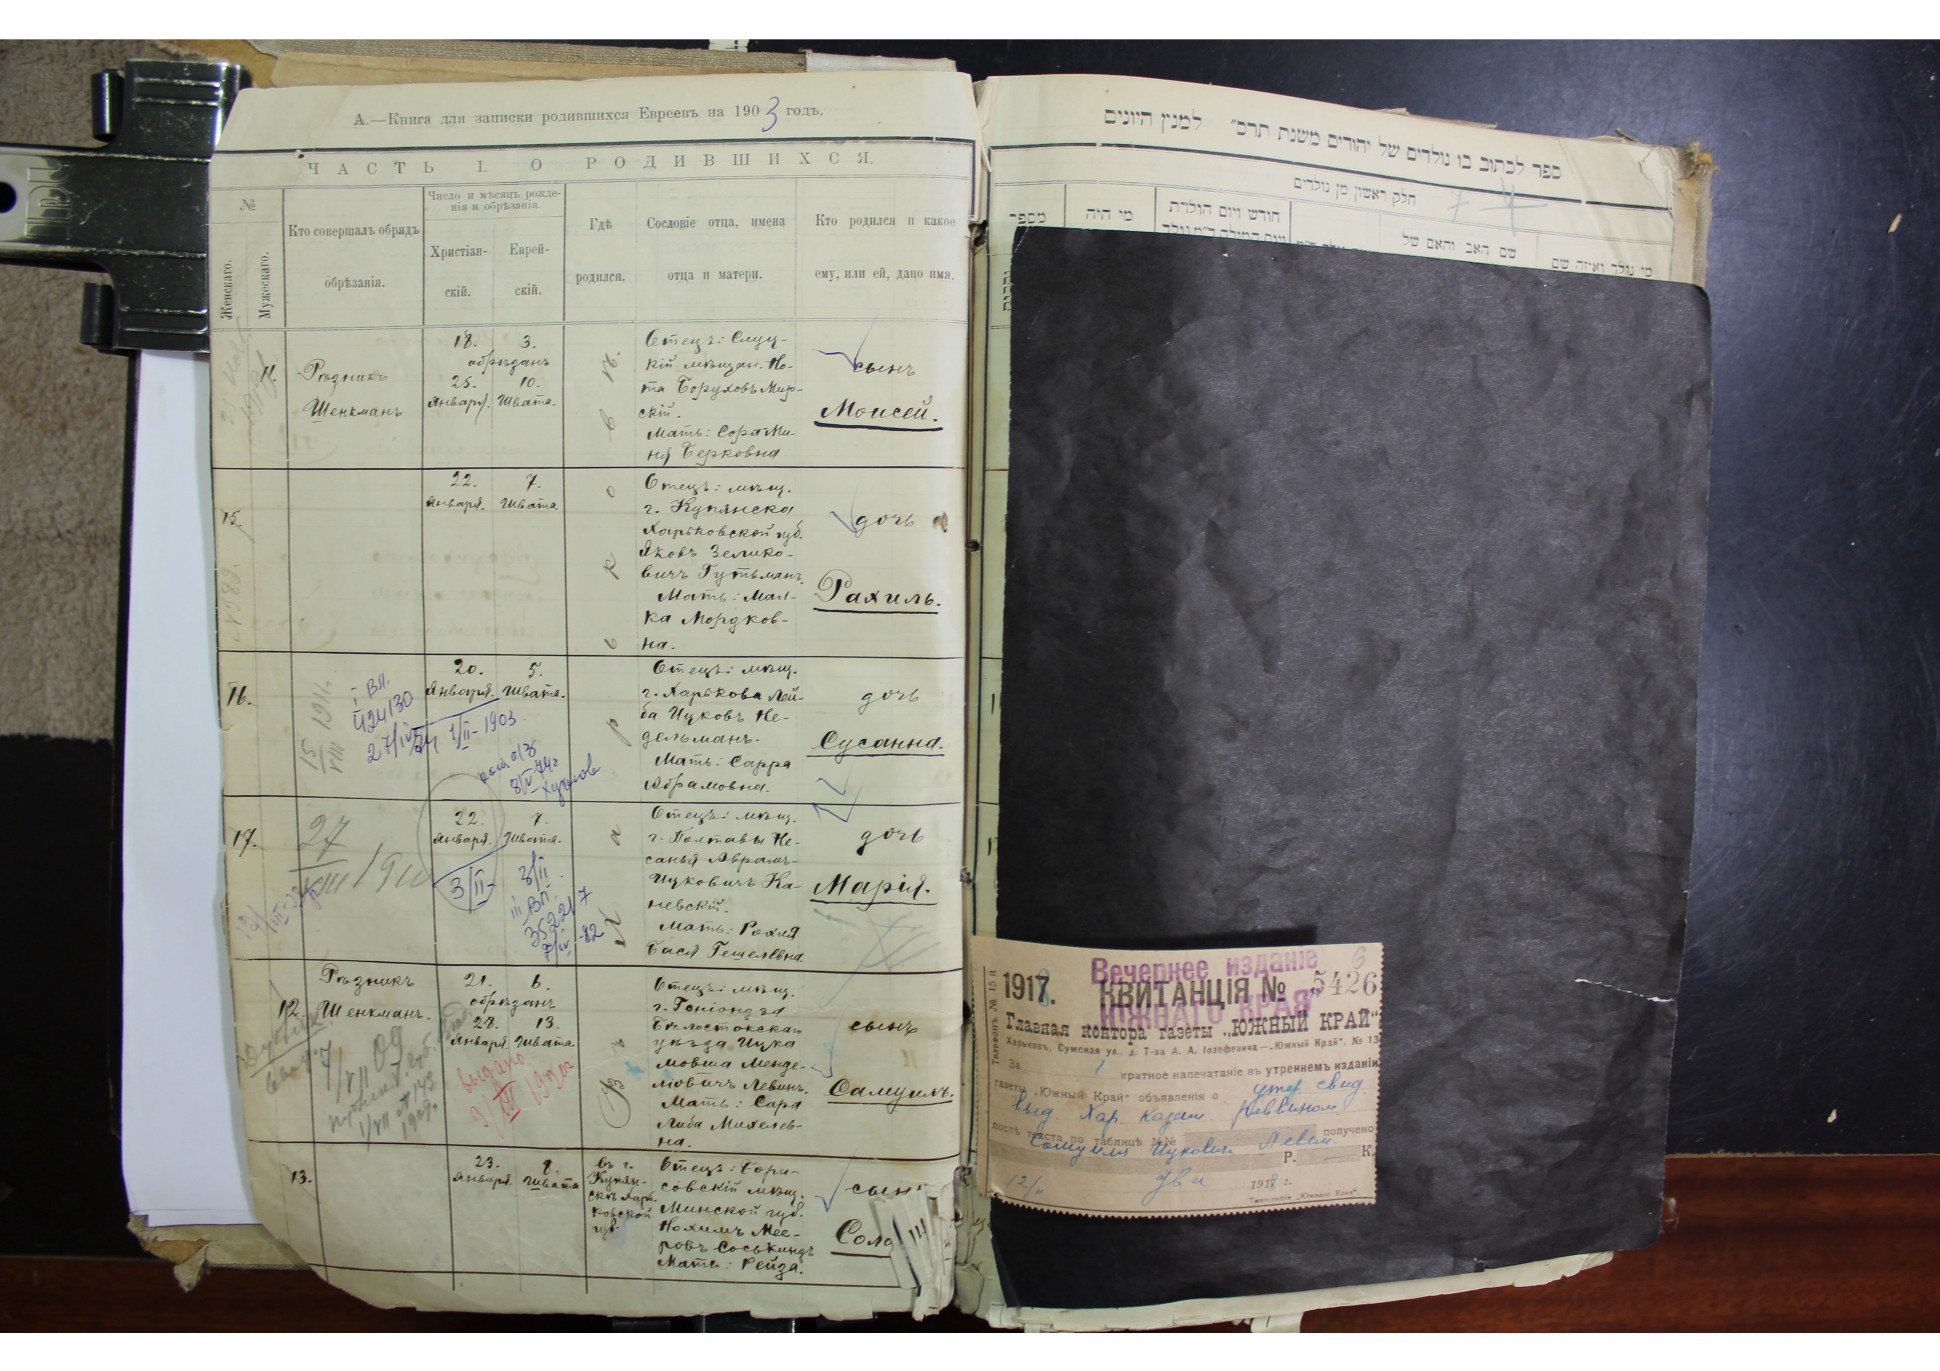 А.—Книга для записки родившихся Евреевъ на 1903 годъ.
ЧАСТЬ I. О РОДИВШИХСЯ.
№
Женскаго.
Мужескаго.
Кто совершалъ обрядъ
обрѣзанія.
Число и мѣсяцъ рожде-
нія и обрѣзанія.
Христіан-
скій.
Еврей-
скій.
Гдѣ
родился.
Сословіе отца, имена
отца и матери.
Кто родился и какое
ему, или ей, дано имя.
11.
Рѣзникъ
Шенкманъ
18. 3.
обрѣзанъ
25. 10.
Января. Швата.
Отецъ: Слуц-
кій мѣщан. Но-
та Боруховъ Мир-
скій.
Мать: Сора Ми-
ня Берковна
сынъ
Моисей.
15.
22. 7.
Января. Швата.
Отецъ: мѣщ.
г. Купянска
Харьковской губ.
Яковъ Зелико-
вичъ Гутьманъ.
Мать: Мал-
ка Мордков-
на.
дочь
Рахиль.
16.
20. 5.
Января. Швата.
15/VIII 1911.
1 ВЯ.
424130
1/II-1903
8/IV-74г
Отецъ: мѣщ.
г. Харькова Лей-
ба Ицковъ Не-
дельманъ.
Мать: Сарра
Абрамовна.
дочь
Сусанна.
17.
27
22. 7.
Января. Швата.
3/II-
3/II
III ВЯ
352217
Отецъ: мѣщ.
г. Полтавы Не-
санья Аврамъ-
Ицковичъ Ка-
невскій.
Мать: Рохля
Бася Гешелевна
дочь
Марія.
въ Харьковѣ
12.
Рѣзникъ
Шенкманъ.
21. 6.
обрѣзанъ
28. 13.
Января. Швата
7/VII 09
1/VII № 143
1909.
выдано
Отецъ: мѣщ.
г. Гоніондза
Бѣлостокскаго
уѣзда Ицка
Мовша Менде-
левичъ Левинъ.
Мать: Сара
Либа Михелев-
на.
сынъ
Самуилъ.
13.
23. 8.
Января. Швата
въ г.
Купян-
скѣ Харь-
ковской
губ.
Отецъ: Бори-
совскій мѣщ.
Минской губ.
Нохимъ Мее-
ровъ Соськиндъ
Мать: Рейза.
сынъ
ספר לכתוב בו נולדים של יהודים משנת תרס״ למנין היונים
חלק ראשון מן נולדים
74
מספר
מי היה
חודש ויום הולדת
ויום המילה
שם האב והאם של
מי נולד ואיזה שם
Вечернее издание
„ЮЖНАГО КРАЯ“
1918. КВИТАНЦІЯ № 5426
6
Телефонъ № 15
Главная контора газеты „ЮЖНЫЙ КРАЙ“
Харьковъ, Сумская ул., д. Т-ва А. А. Іозефовича—„Южный Край“, № 13
За 1 кратное напечатаніе въ утреннемъ изданіи
газеты „Южный Край“ объявленія о утер свид.
выд. Хар. казен раввином
послѣ текста по таблицѣ №№ получено
Самуила Ицкович Левин.
Р. К.
12/ 1918 г.
Типографія „Южнаго Края“.